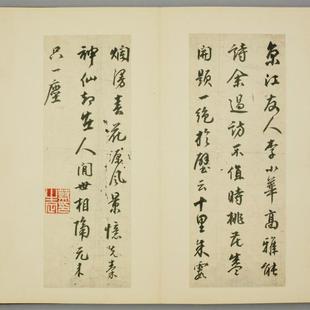 京江友人李小華高雅能
詩余過訪不值時桃花盛
開題一絕於壁云十里朱霞
爛漫春花源風景憶先秦
神仙却在人間世相隔元来
只一塵